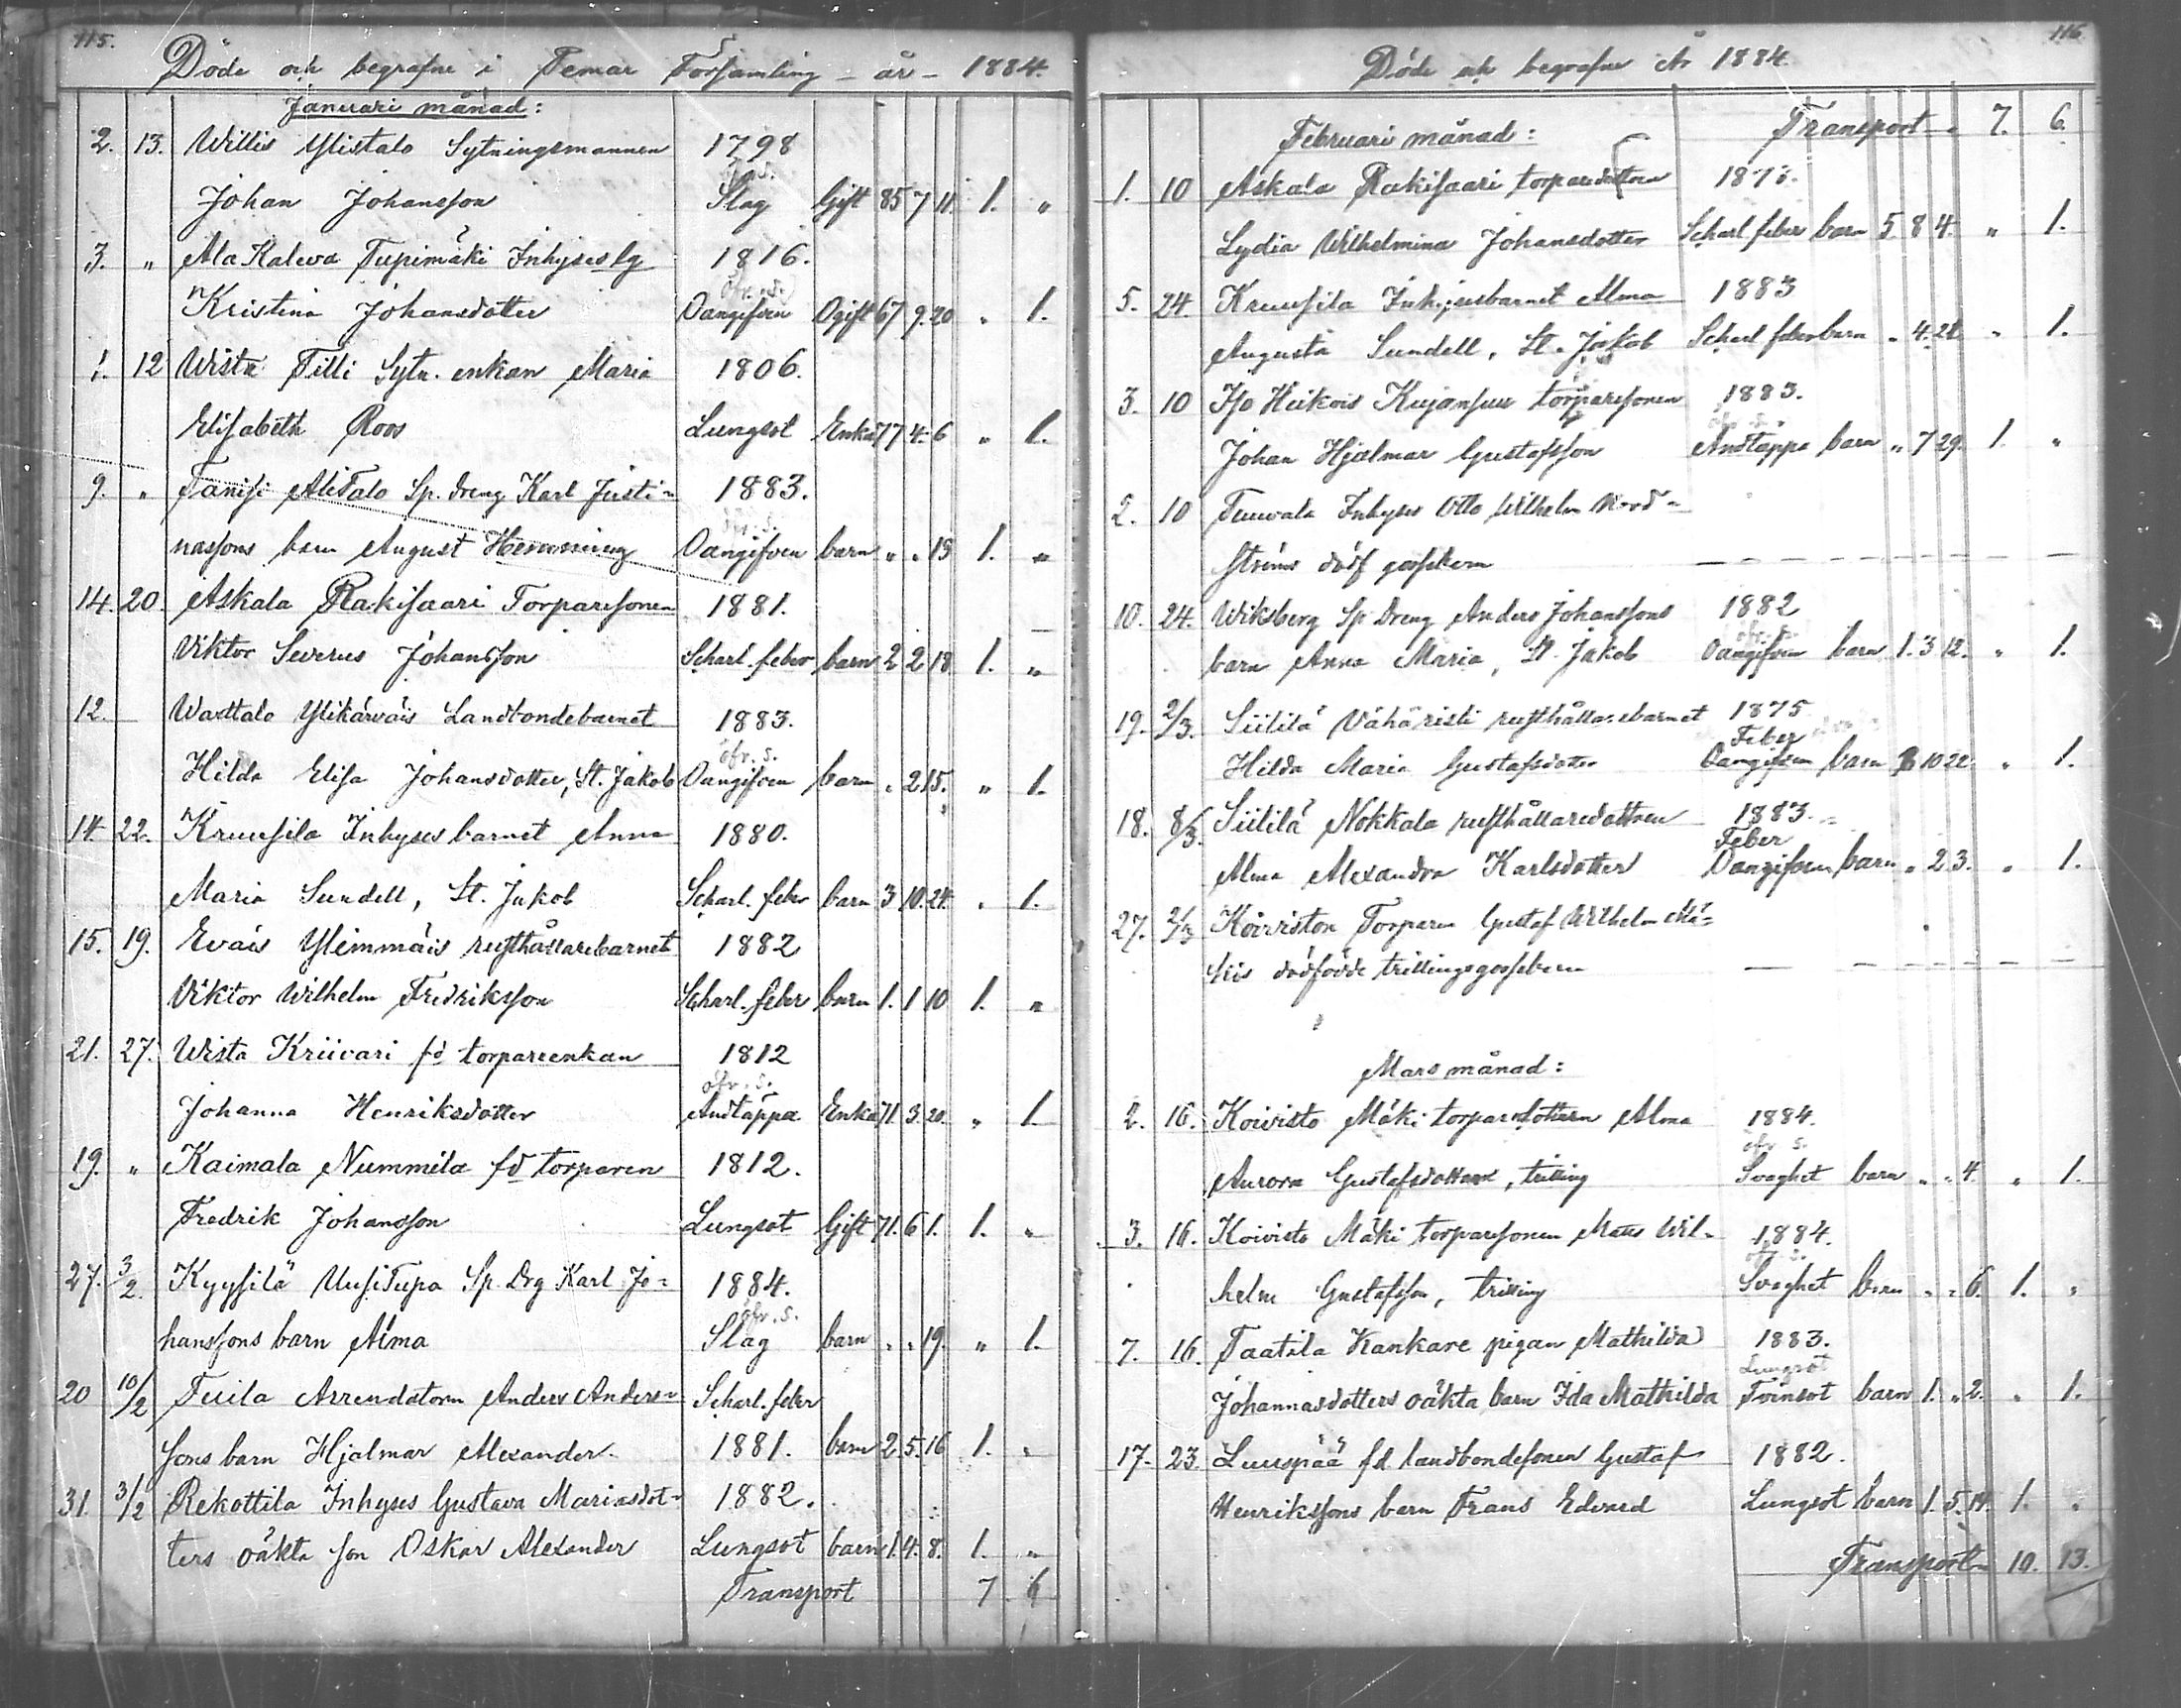 115.
Döde och begrafne i Femar Församling - år - 1884.
Januari månad:
2. 13. Willis Ylistalo Sytningsmannen 1798
öfr. s.
Johan Johansson Slag Gift 85 7 11. 1. "
3. " Ala Kaleva Tupimäki Inhyses lg 1816.
öfr. s.
Kristina Johansdotter Oangifven Ogift 67 9. 20 " 1.
1. 12 Wista Filli Sytn. enkan Maria 1806.
Elisabeth Roos Lungsot Enka 77 4. 6 " 1.
9. " Tanisi AliTalo Sp. dreng Karl Justi- 1883.
öfr. s.
nassons barn August Hemming Oangifven barn " " 15 1. "
14. 20. Askala Rakisaari Torparesonen 1881.
Viktor Severus Johansson Scharl. feber barn 2 2 18. 1. "
12. Wadtalo Ylikärväis Landbondebarnet 1883.
öfr. s.
Hilda Elisa Johansdotter, St. Jakob Oangifven barn " 2 15. " 1.
14 22. Kruusila Inhyses barnet Anna 1880.
Maria Sundell, St. Jakob Scharl. feber barn 3 10. 24. " 1.
15. 19. Eväis Ylimmäis rusthållarebarnet 1882
Viktor Wilhelm Fredriksson Scharl. feber barn 1. 1 10 1. "
21. 27. Wista Kriivari fd torpareenkan 1812
öfr. s.
Johanna Henriksdotter Andtäppa Enka 71. 3. 20. " 1.
19. " Kaimala Nummila fd torparen 1812.
Fredrik Johansson Lungsot Gift 71. 6 1. 1. "
27. 3/2. Kyysilä UusiTupa Sp. Drg Karl Jo- 1884.
öfr. s.
hanssons barn Alma Slag barn " " 19. " 1.
20 10/2 Tuila Arrendatorn Anders Anders- Scharl. feber
sons barn Hjalmar Alexander 1881. barn 2. 5. 16 1. "
31. 3/2 Rekottila Inhyses Gustava Mariasdot- 1882.
ters oäkta son Oskar Alexander Lungsot barn 1. 4. 8. 1. "
Transport 7 6
116
Döde och begrafne År 1884
Februari månad: Transport 7. 6.
1. 10 Askala Rakisaari torparedottern 1878.
Lydia Wilhelmina Johansdotter Scharl feber barn 5. 8 4. " 1.
5. 24. Kruusila Inhysesbarnet Alma 1883
Augusta Sundell, St. Jakob Scharl feber barn " 4. 28 " 1.
3. 10 Iso Heikois Kujansuu torparesonen 1883.
öfr. s.
Johan Hjalmar Gustafsson Andtäppa barn " 7 29. 1. "
2. 10 Tuuvala Inhyses Otto Wilhelm Nord-
ströms dödf gossebarn
10. 24. Wiksberg Sp Dreng Anders Johanssons 1882
öfr. s.
barn Anna Maria, St. Jakob Oangifven barn 1. 3 12. " 1.
19. 2/3. Siililä Vähäristi rusthållarebarnet 1875
Feber
Hilda Maria Gustafsdotter Oangifven barn 8 10 22 " 1.
18. 8/3. Siililä Nokkala rusthållaredottern 1883.
Feber
Alma Alexandra Karlsdotter Oangifven barn " 2 3. " 1.
27. 2/3 Koiviston Torparen Gustaf Wilhelm Mä-
kis dödfödde trillingsgossebarn
Mars månad:
2. 16. Koivisto Mäki torparedottern Alma 1884.
öfr s.
Aurora Gustafsdotter, trilling Svaghet barn " " 4. " 1.
3. 16. Koivisto Mäki torparesonen Mats Wil- 1884.
öfr. s.
helm Gustafsson, trilling Svaghet barn " " 6. 1. "
7. 16. Taatila Kankare pigan Mathilda 1883.
Lungsot
Johannasdotters oäkta barn Ida Mathilda Tvinsot barn 1. " 2. " 1.
17. 23. Luuspää fd landbondesonen Gustaf 1882.
Henrikssons barn Frans Edvard Lungsot barn 1. 5. 14. 1. "
Transport 10. 13.